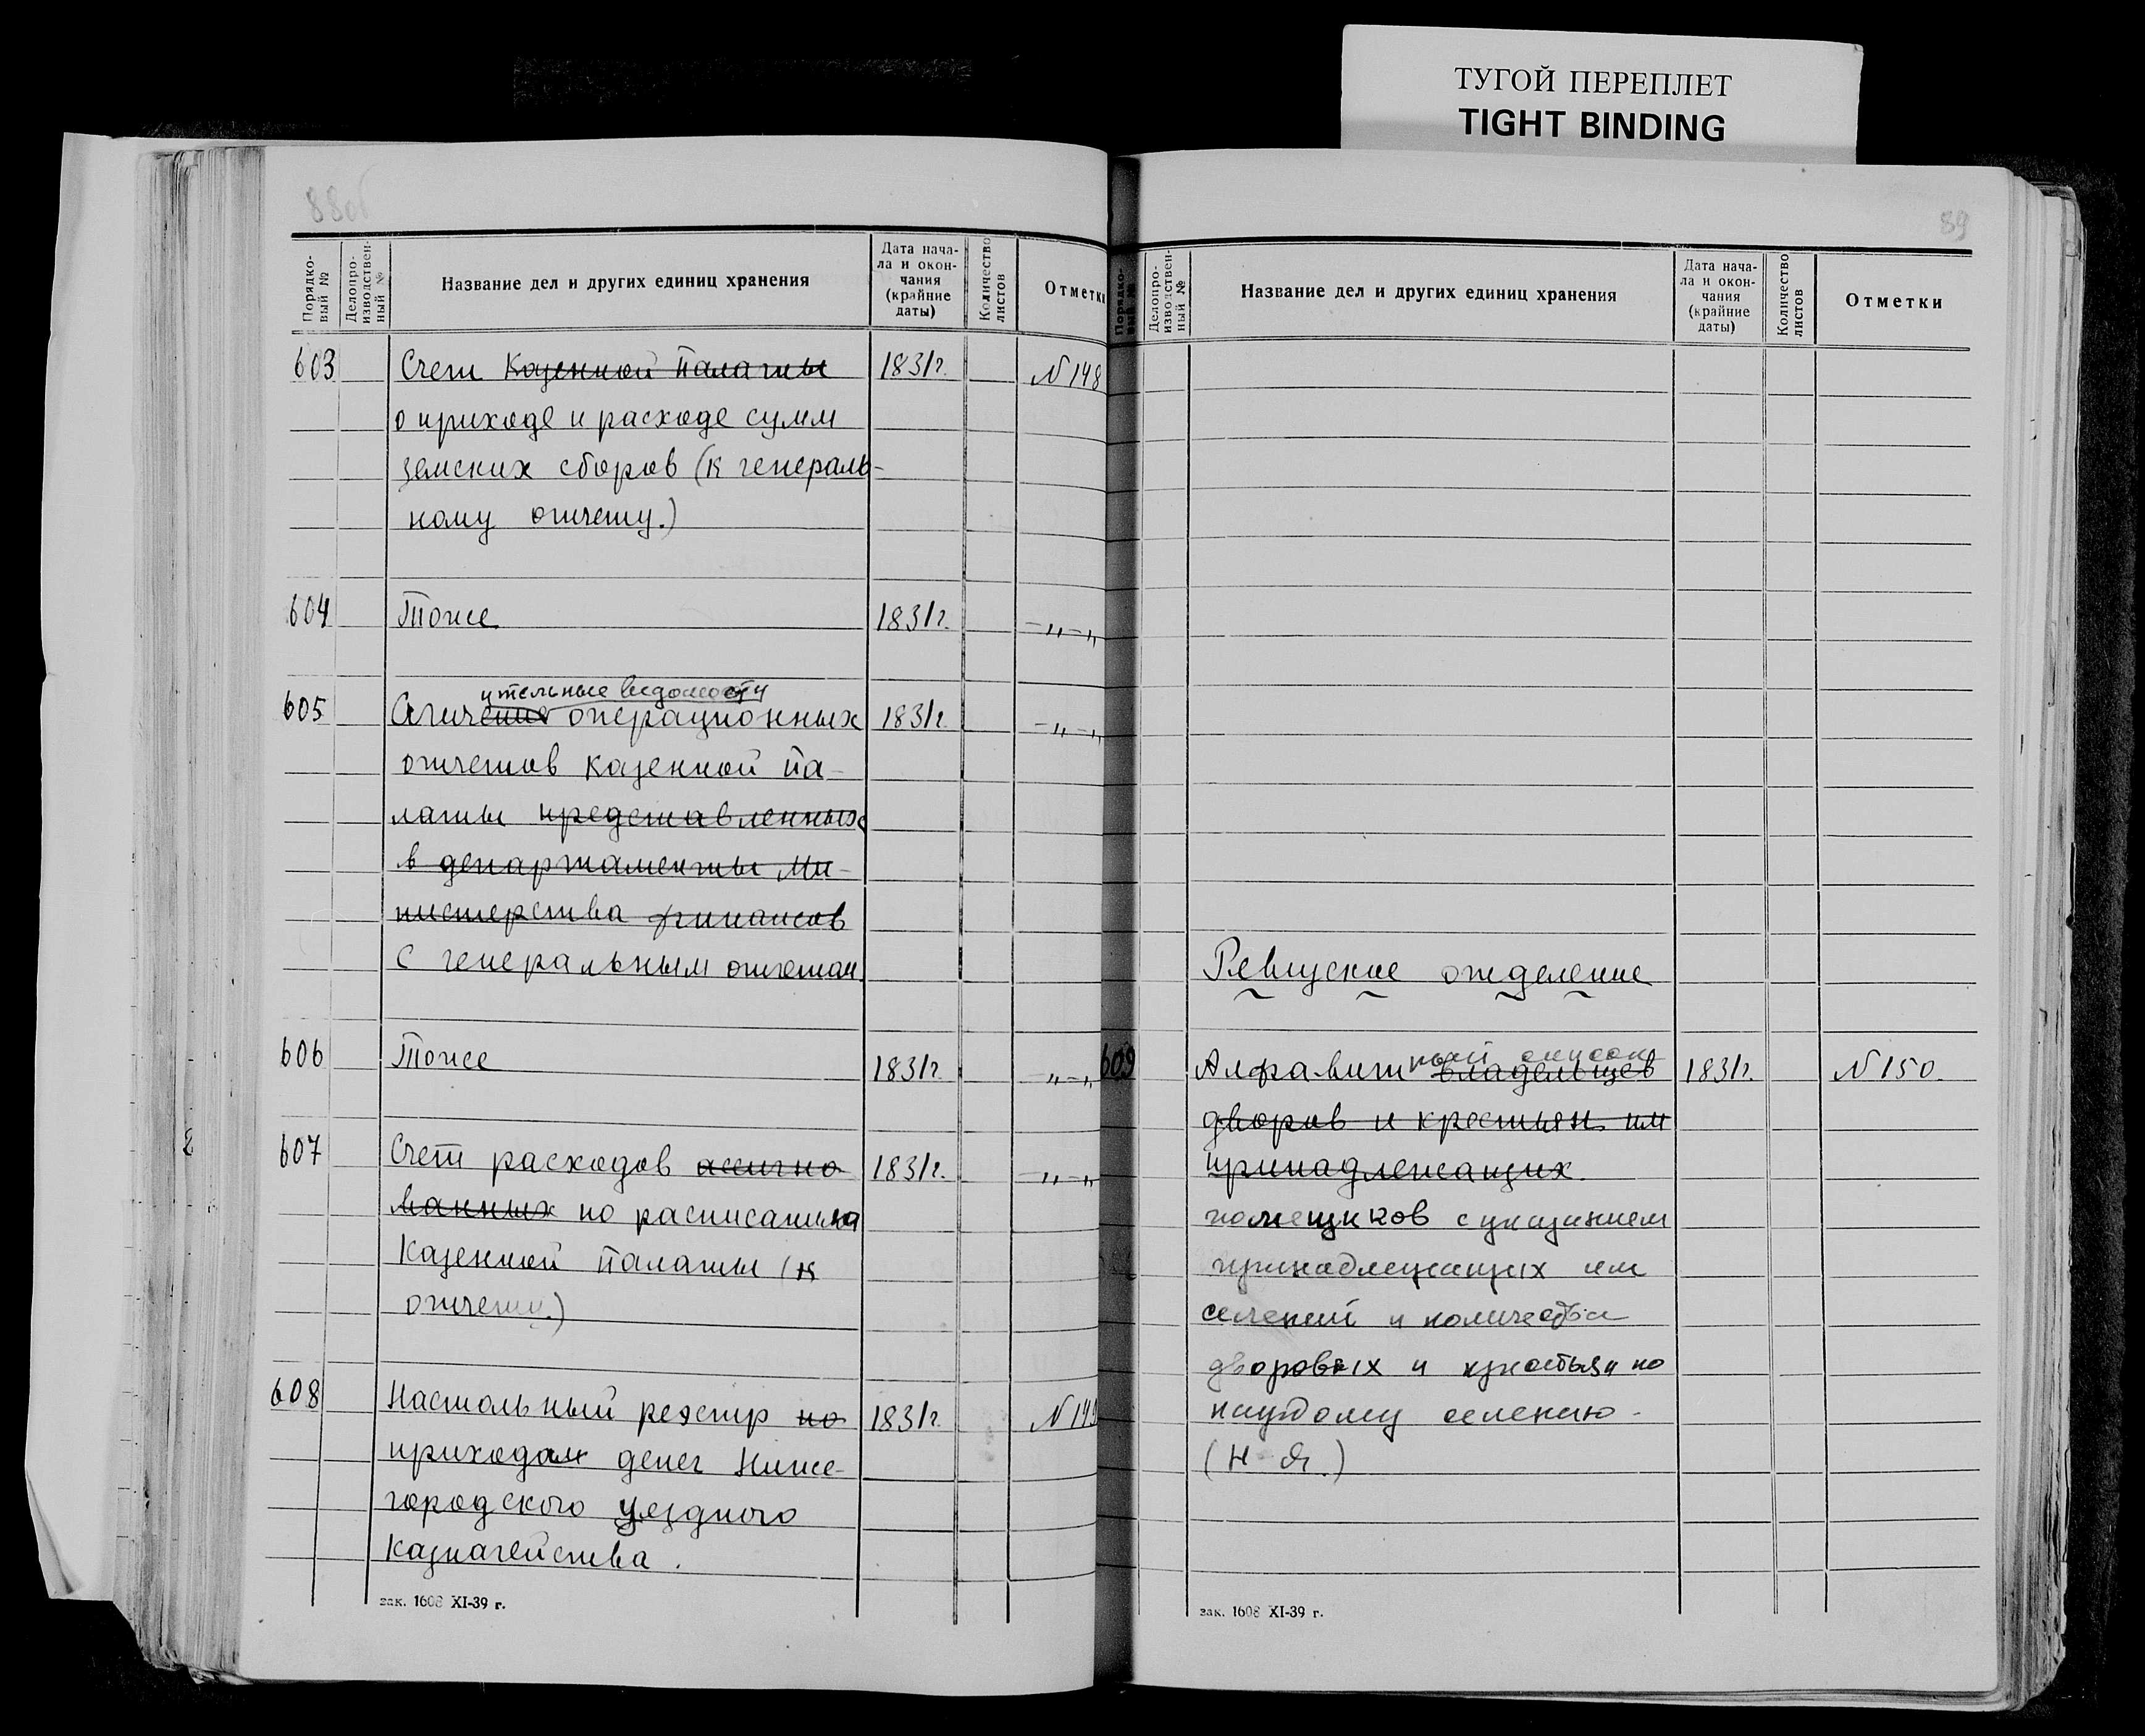 ТУГОЙ ПЕРЕПЛЕТ
TIGHT BINDING
88об
Порядко-
вый №
Делопро-
изводствен-
ный №
Название дел и других единиц хранения
Дата нача-
ла и окон-
чания
(крайние
даты)
Количество
листов
Отметки
603 Счет Казенной Палаты 1831г. N 148
о приходе и расходе сумм
земских сборов (к генераль-
ному отчету.)
604 Тоже 1831г. -„-„
ительные ведомости
605 Сличение операционных 1831г. -„-„
отчетов казенной Па-
латы представленных
в департаменты Ми-
нистерства финансов
с генеральным отчетом.
606 Тоже 1831г. „-„
607 Счет расходов ассигно 1831г. -„-„
ванных по расписанию
Казенной Палаты (к
отчету.)
608 Настольный реэстр по 1831г. N 149
приходам денег Ниже-
городского уездного
Казначейства.
зак. 1608 XI-39 г.
89
Порядко-
вый №
Делопро-
изводствен-
ный №
Название дел и других единиц хранения
Дата нача-
ла и окон-
чания
(крайние
даты)
Количество
листов
Отметки
Ревизское отделение
ный список
609 Алфавит владельцев 1831г. N 150.
дворов и крестьян им
принадлежащих
помещиков с указанием
принадлежащих им
селений и количества
дворовых и крестьян по
каждому селению.
(Н-Я.)
зак. 1608 XI-39 г.